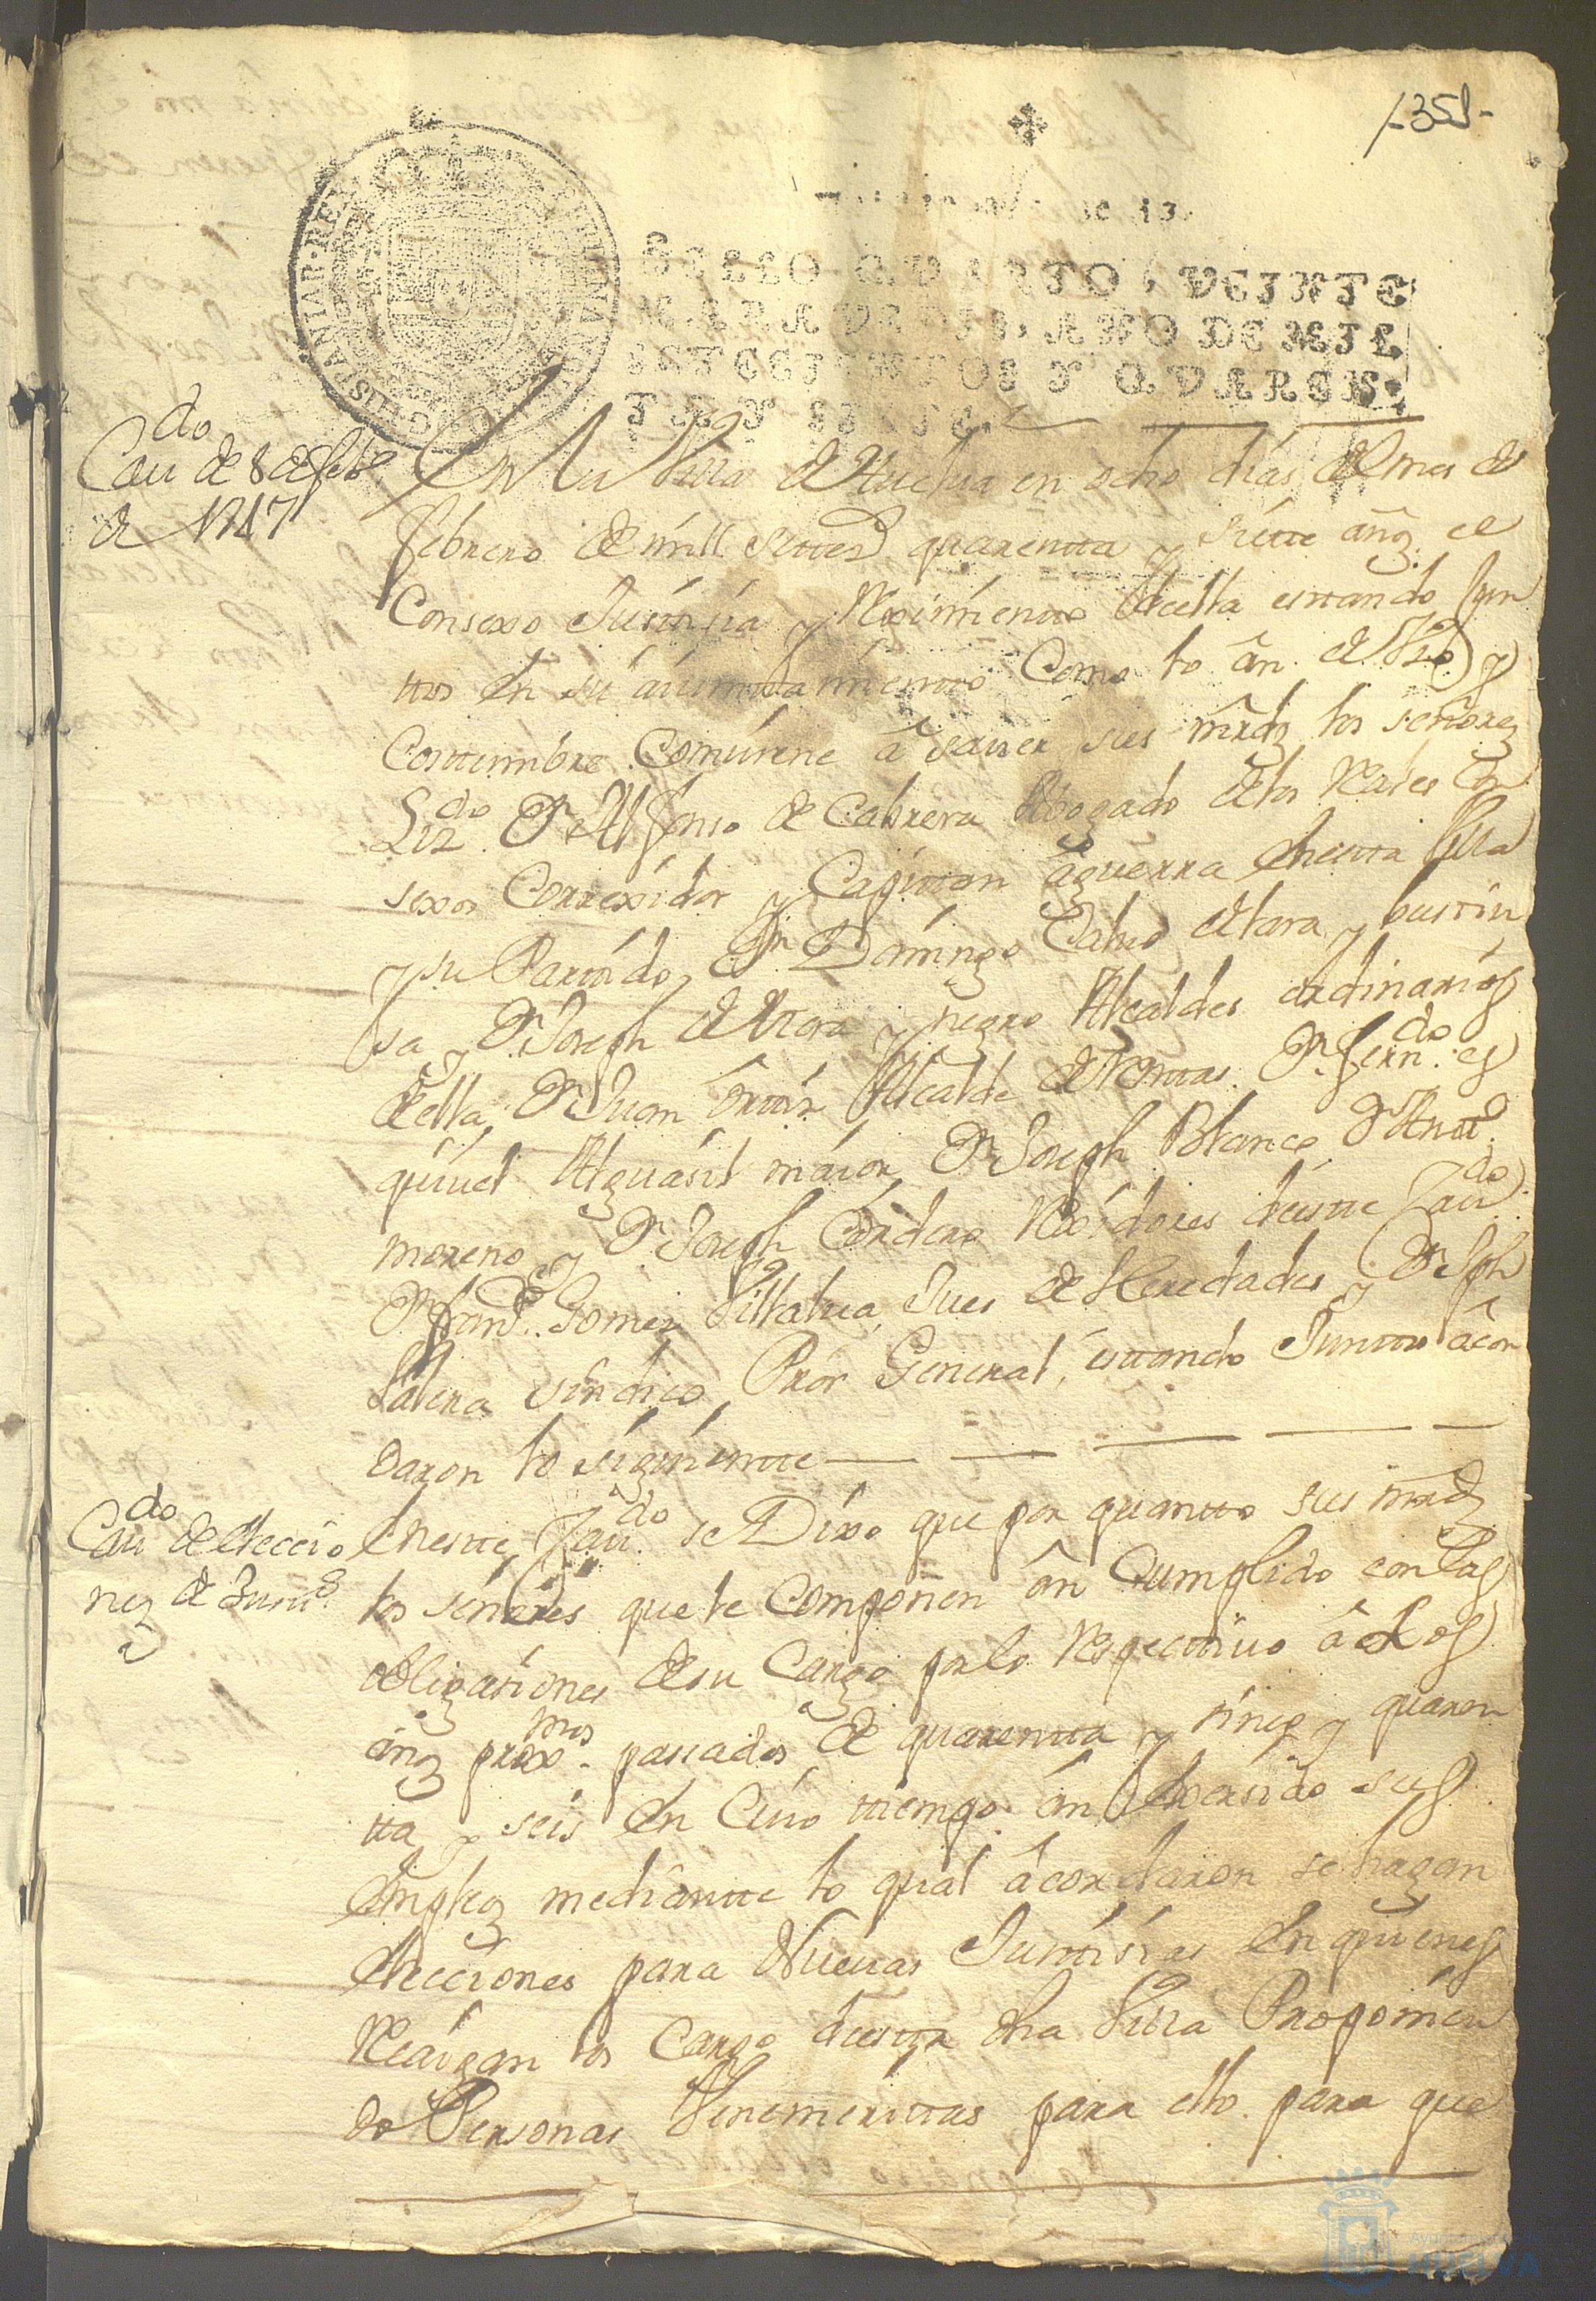 -351-
SELLO QVARTO, VEINTE
MARAVEDIS, AÑO DE MIL
SETECIENTOS Y QVAREN-
TA Y SIETE.
HISPANIAR·REX
Cau.do de 8 de feb.o
de 1747
En la Villa de Huelua en ocho dias del mes de
febrero de mill setter.s quarentta y siette añoz el
Consexo Justisia y Reximientto della esttando Jun
ttos en su aiunttamientto Como lo án de Vso y
Costtumbre Combiene â sauer sus mrdz los señorez
Lizdo Dn Alfonso de Cabrera Abogado de los Reales Con
sexos Correxidor y Capittan âguerra destta Villa
y su Parttido, Dn Domingo Caluo de lara y busttin
sa, y Dn Joseph de Mora y negro Alcaldes ordinarios
della, Dn Juan ôrttiz Alcalde de Renttas Dn fern.do es
quiuel Alguasil maior, Dn Joseph Blanco, Dn Antt.o
moreno, y Dn Joseph Cordero Rexidores destte Cau.do
Dn fran.co Gomez Villalua, Jues de Heredades, y Dn Jph
Valera sindico Pror General, esttando Junttos âcor
daron lo siguientte
Cau.do de Eleccio
nez de Justt.s
Enestte Cau.do se Dixo que por quantto sus mrdz
los señores que le componen ân Cumplido con las
obligasiones de su Cargo por lo Respecttiuo â Los
âñoz prox.mos passados de quarentta y sinco y quaren
tta y seis En Cuio ttiempo ân Exersido sus
Empleoz mediantte lo qual âcordaron se hagan
Elecciones para Nueuas Justtisias En quienes
Recaigan los Cargo destta dha Villa Proponien
do Personas Venemerittas para ello para que
Ayuntamiento de
HUELVA